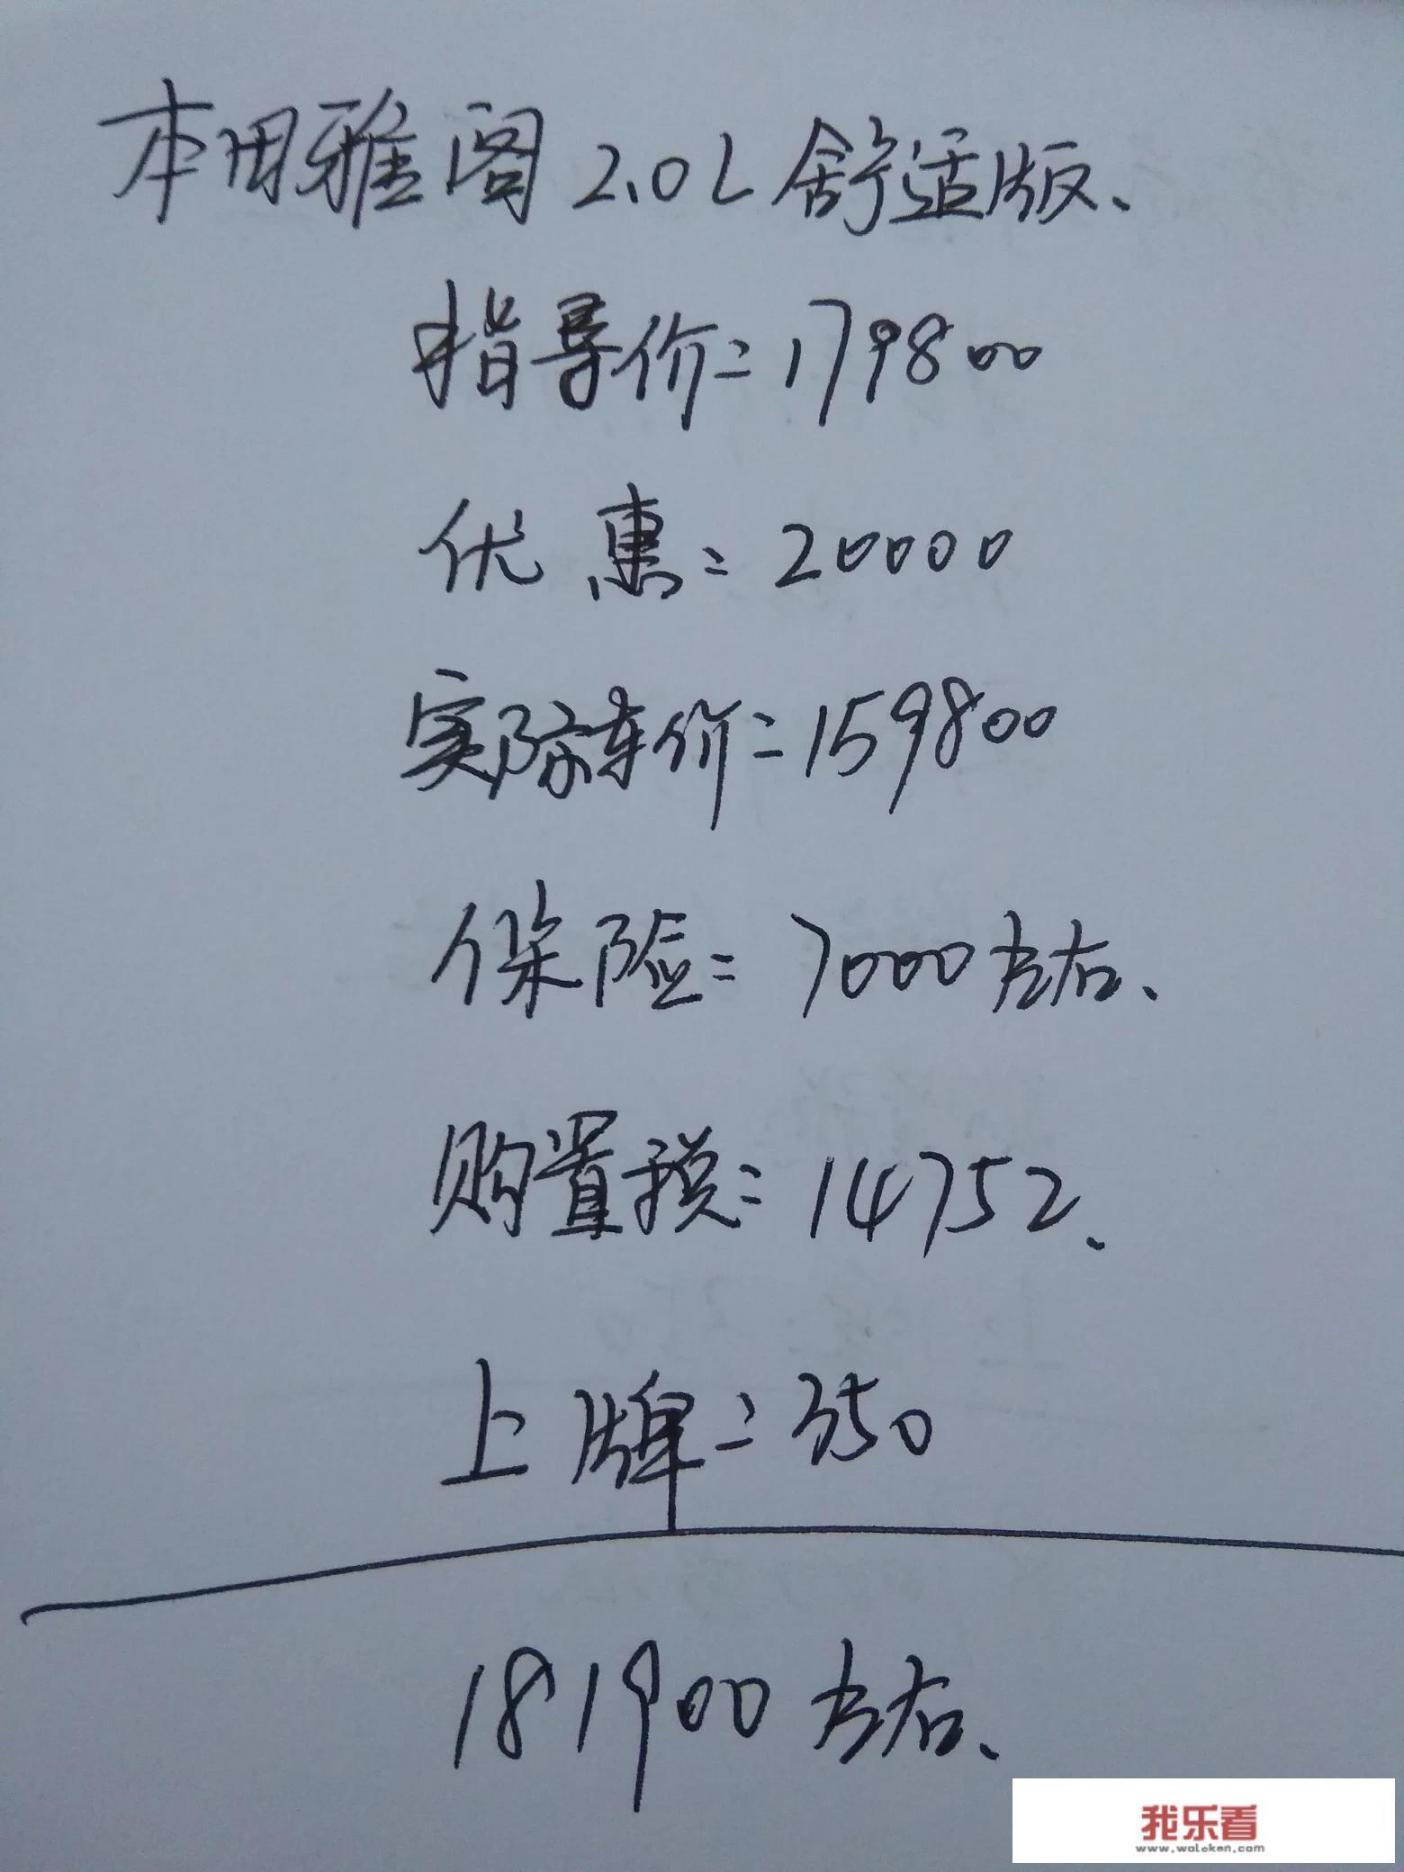 本田雅阁 2.0L 舒适版、
指导价=179800
优惠=20000
实际车价=159800
保险=7000左右、
购置税=14752、
上牌=350
181900左右、
我乐看
www.woleken.com